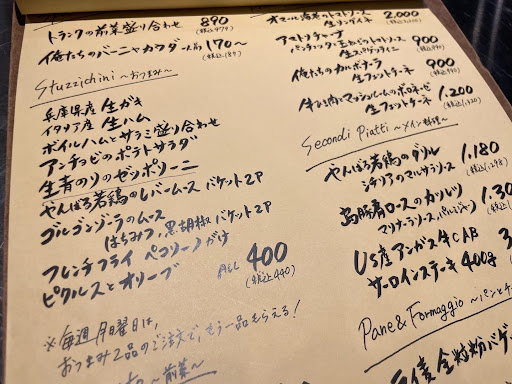 トランクの前菜盛り合わせ 890
(税込979)
俺たちのバーニャカウダ 170〜
(税込187)
Stuzzichini 〜おつまみ〜
兵庫県産 生ガキ
イタリア産 生ハム
ボイルハムとサラミ盛り合わせ
アンチョビのポテトサラダ
生青のりのゼッポリーニ
やんばる若鶏のレバームース バケット2P
ゴルゴンゾーラのムース
はちみつ,黒胡椒 バケット2P
フレンチフライ ペコリーノがけ
ピクルスとオリーブ
ALL 400
(税込440)
※毎週月曜日は、
おつまみ2品のご注文で、もう一品もらえる!
〜前菜〜
オマール海老のトマトソース 2,000
生リングイネ
アマトリチャーナ
パンチェッタ・玉ねぎのトマトソース 900
生スパゲッティーニ
俺たちのカルボナーラ 900
生フェットチーネ
牛ひき肉とマッシュルームのボロネーゼ
生フェットチーネ 1,200
Secondi Piatti 〜メイン料理〜
やんばる若鶏のグリル 1,180
シチリアのマルサラソース (税込1,298)
島豚肩ロースのカツレツ 1,30
マリナーラソース,パルミジャーノ
US産アンガス牛CAB
サーロインステーキ 400g
Pane & Formaggio 〜パンとチ
全粒粉バゲ